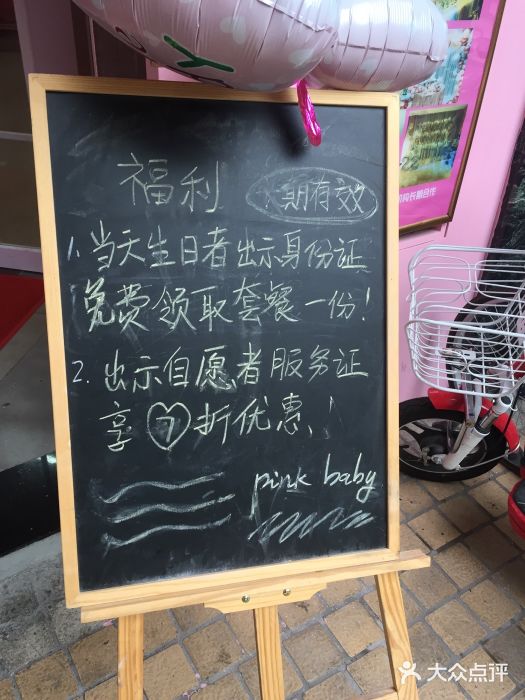 福利 期有效
1.当天生日者出示身份证
免费领取套餐一份!
2.出示自愿者服务证
享7折优惠!
pink baby
大众点评